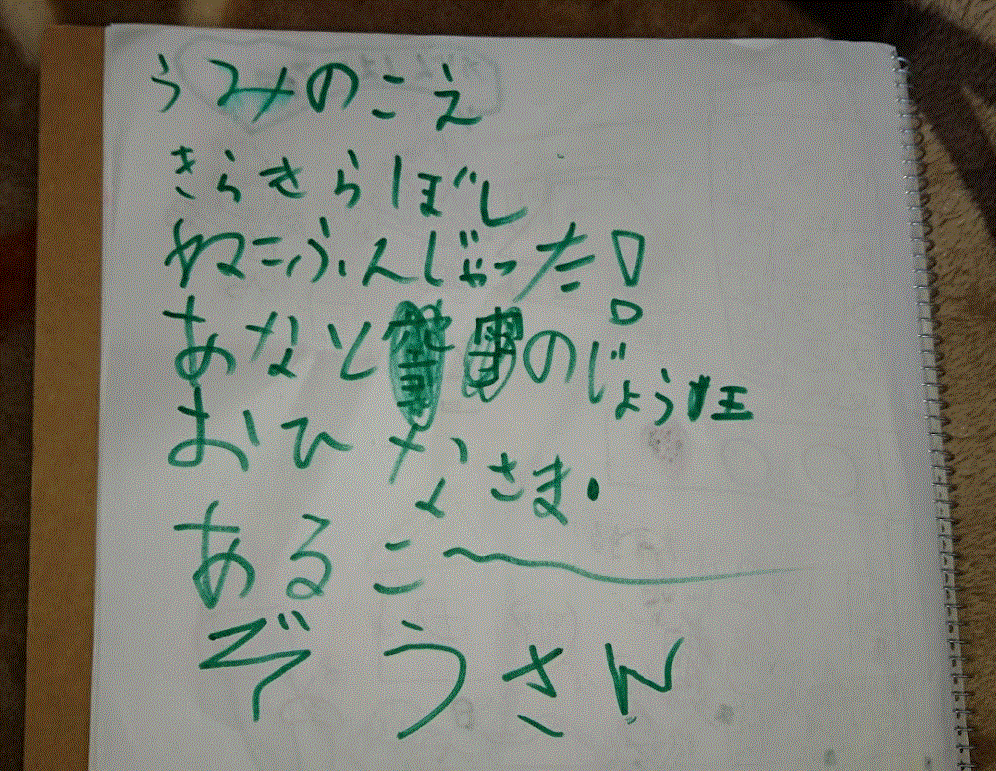 うみのこえ
きらきらぼし
ねこふんじゃった!
あなと雪のじょう王
おひなさま.
あるこ〜
ぞうさん